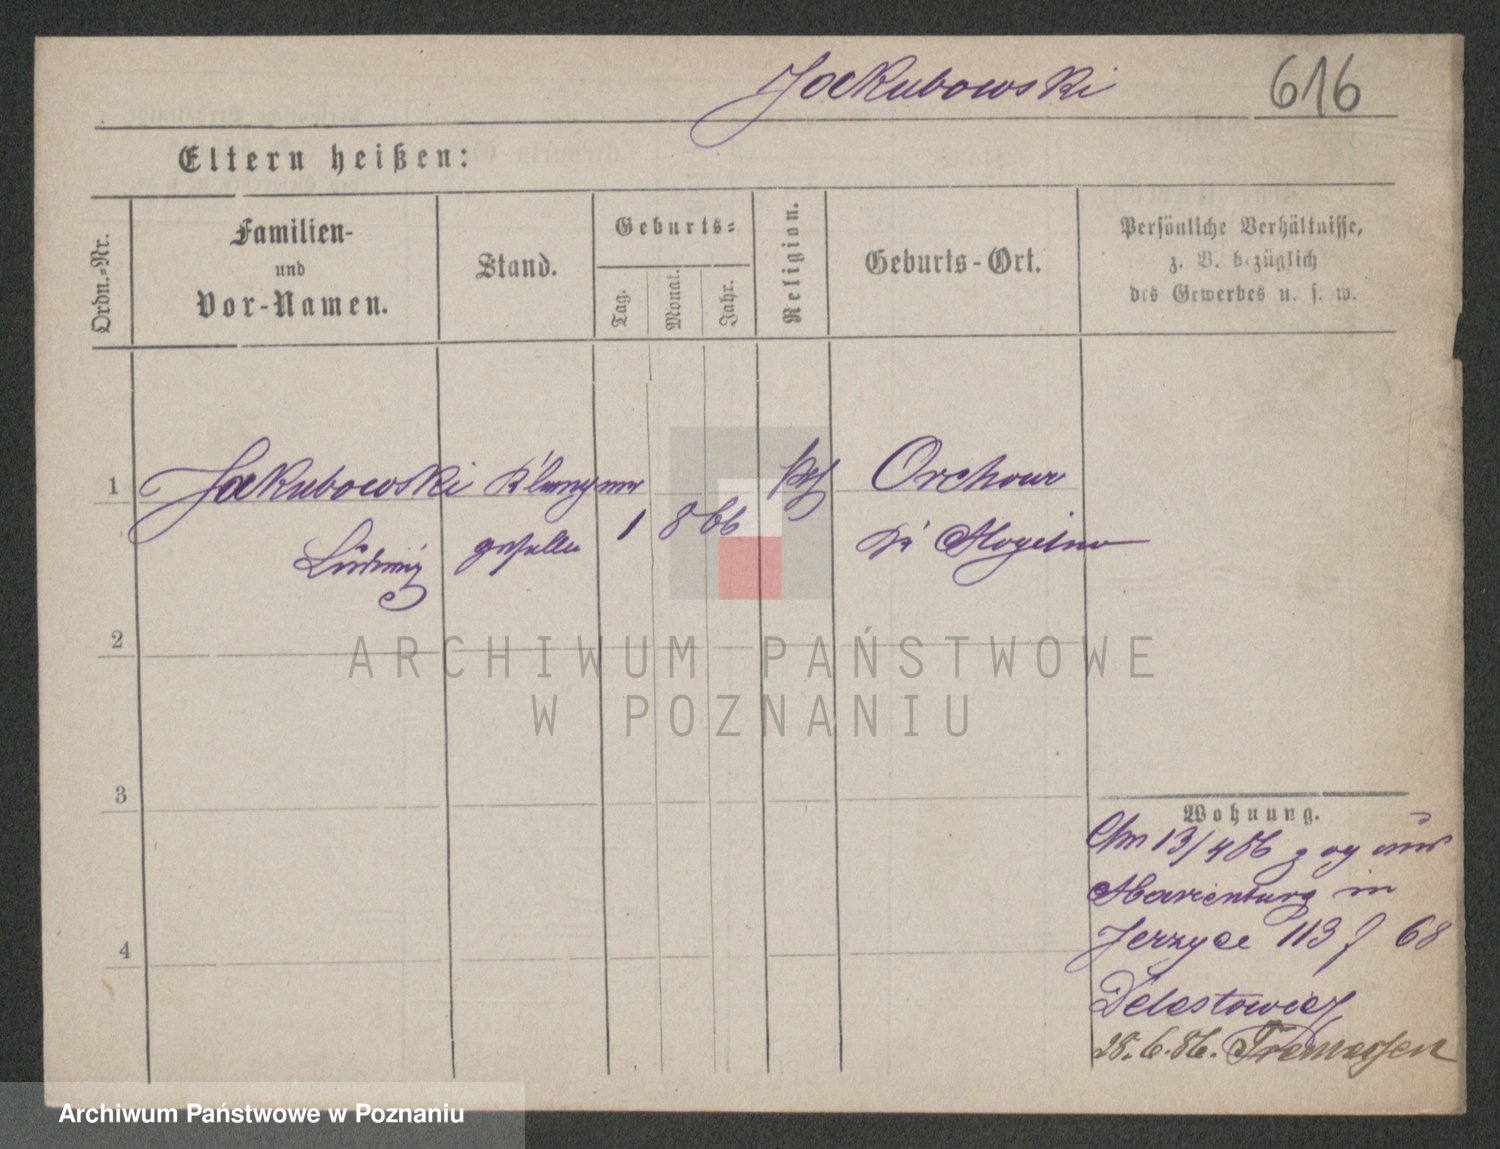 Jakubowski 616
Eltern heißen:
Ordn.=Nr.
Familien-
und
Vor-Namen.
Stand.
Geburts=
Tag.
Monat.
Jahr.
Religion.
Geburts-Ort.
Persönliche Verhältnisse,
z. B. bezüglich
des Gewerbes u. s. w.
1 Jakubowski Klempner kth Orchow
Ludwig geselle 1 8 66 Kr Mogilno
2
3
4
Wohnung.
13/4 86 zog aus
Marienburg in
Jerzyce 113 f 68
28.6.86. Tremessen
ARCHIWUM PAŃSTWOWE
W POZNANIU
Archiwum Państwowe w Poznaniu